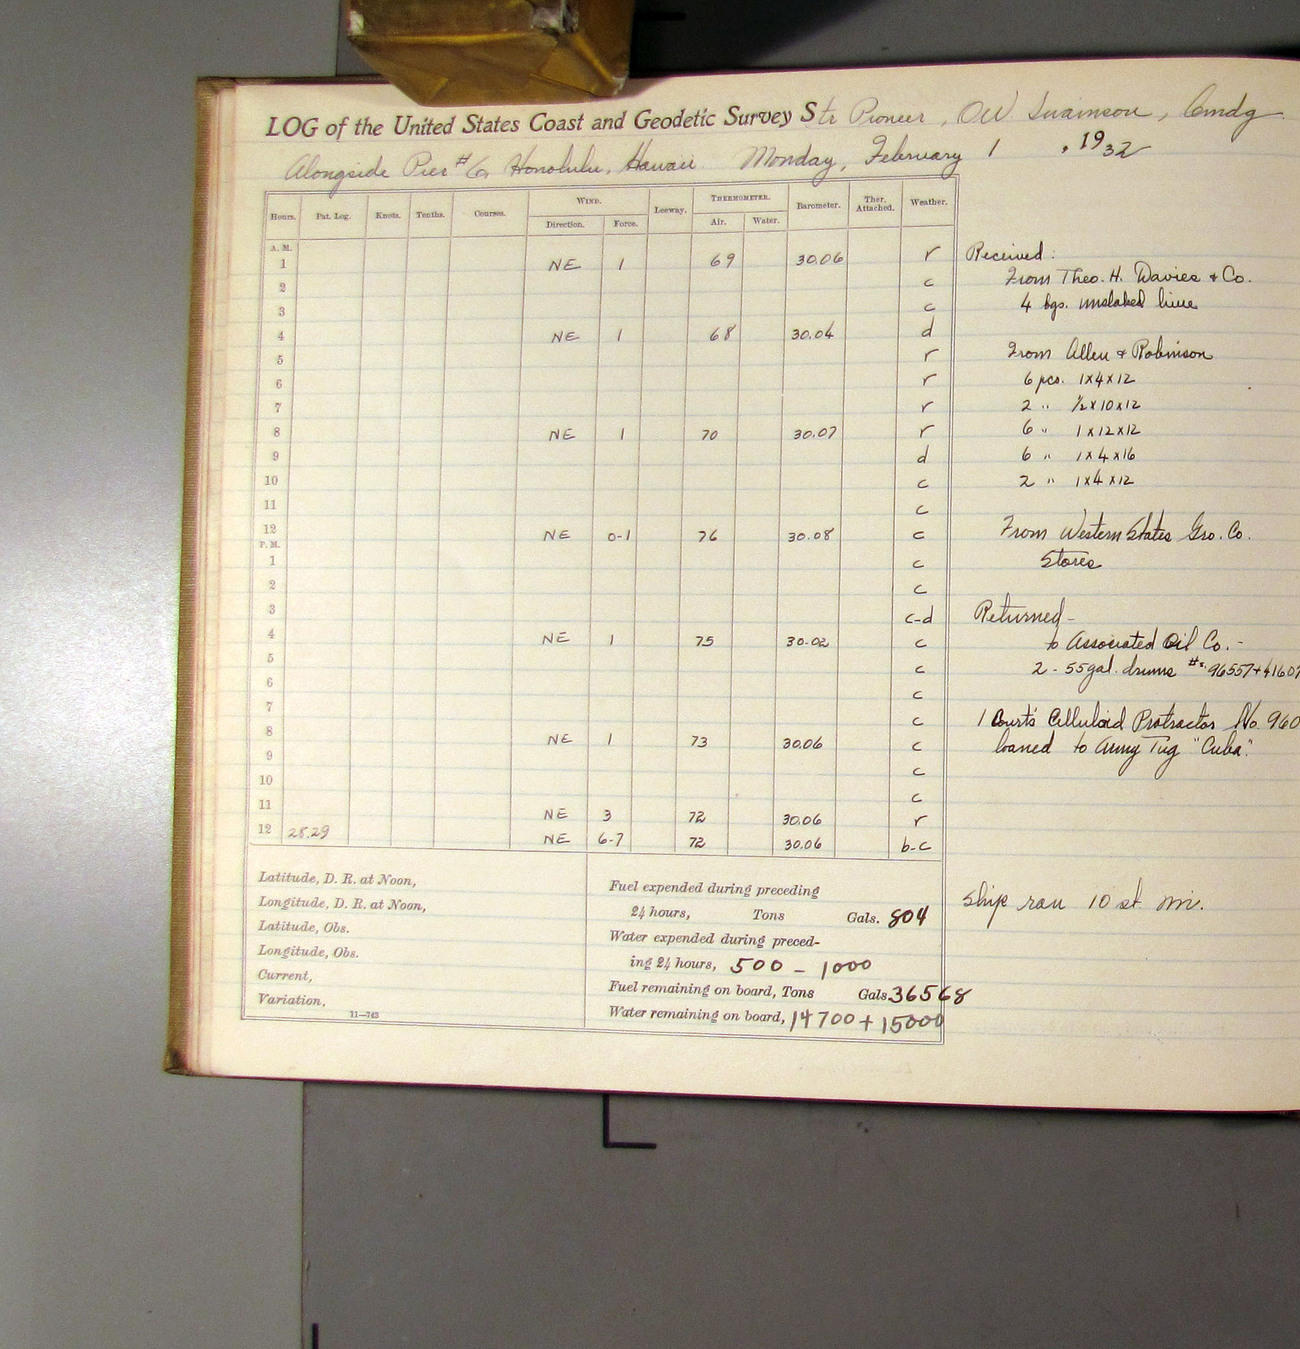 LOG of the United States Coast and Geodetic Survey Str Pioneer, OW Swainson, Cmdg
Alongside Pier #6, Honolulu, Hawaii Monday, February 1, 1932
Hours. Pat. Log. Knots. Tenths. Courses. WIND. Direction. Force. Leeway. THERMOMETER. Air. Water. Barometer. Ther. Attached. Weather.
A. M.
1 NE 1 69 30.06 r
2 c
3 c
4 NE 1 68 30.04 d
5 r
6 r
7 r
8 NE 1 70 30.07 r
9 d
10 c
11 c
12 NE 0-1 76 30.08 c
P. M.
1 c
2 c
3 c-d
4 NE 1 75 30.02 c
5 c
6 c
7 c
8 NE 1 73 30.06 c
9 c
10 c
11 NE 3 72 30.06 r
12 28.29 NE 6-7 72 30.06 b-c
Received:
From Theo. H. Davies & Co.
4 bgs. unslaked lime
From Allen & Robinson
6 pcs. 1x4x12
2 " 1/2x10x12
6 " 1x12x12
6 " 1x4x16
2 " 1x4x12
From Western States Gro. Co.
Stores
Returned-
to Associated Oil Co.-
2-55gal. drums #s. 96557+41607
1 Court's Celluloid Protractor No. 960
loaned to Army Tug "Cuba".
Ship ran 10 st. mi.
Latitude, D. R. at Noon,
Longitude, D. R. at Noon,
Latitude, Obs.
Longitude, Obs.
Current,
Variation,
11—763
Fuel expended during preceding
24 hours, Tons Gals. 804
Water expended during preced-
ing 24 hours, 500 - 1000
Fuel remaining on board, Tons Gals. 36568
Water remaining on board, 14700 + 15000